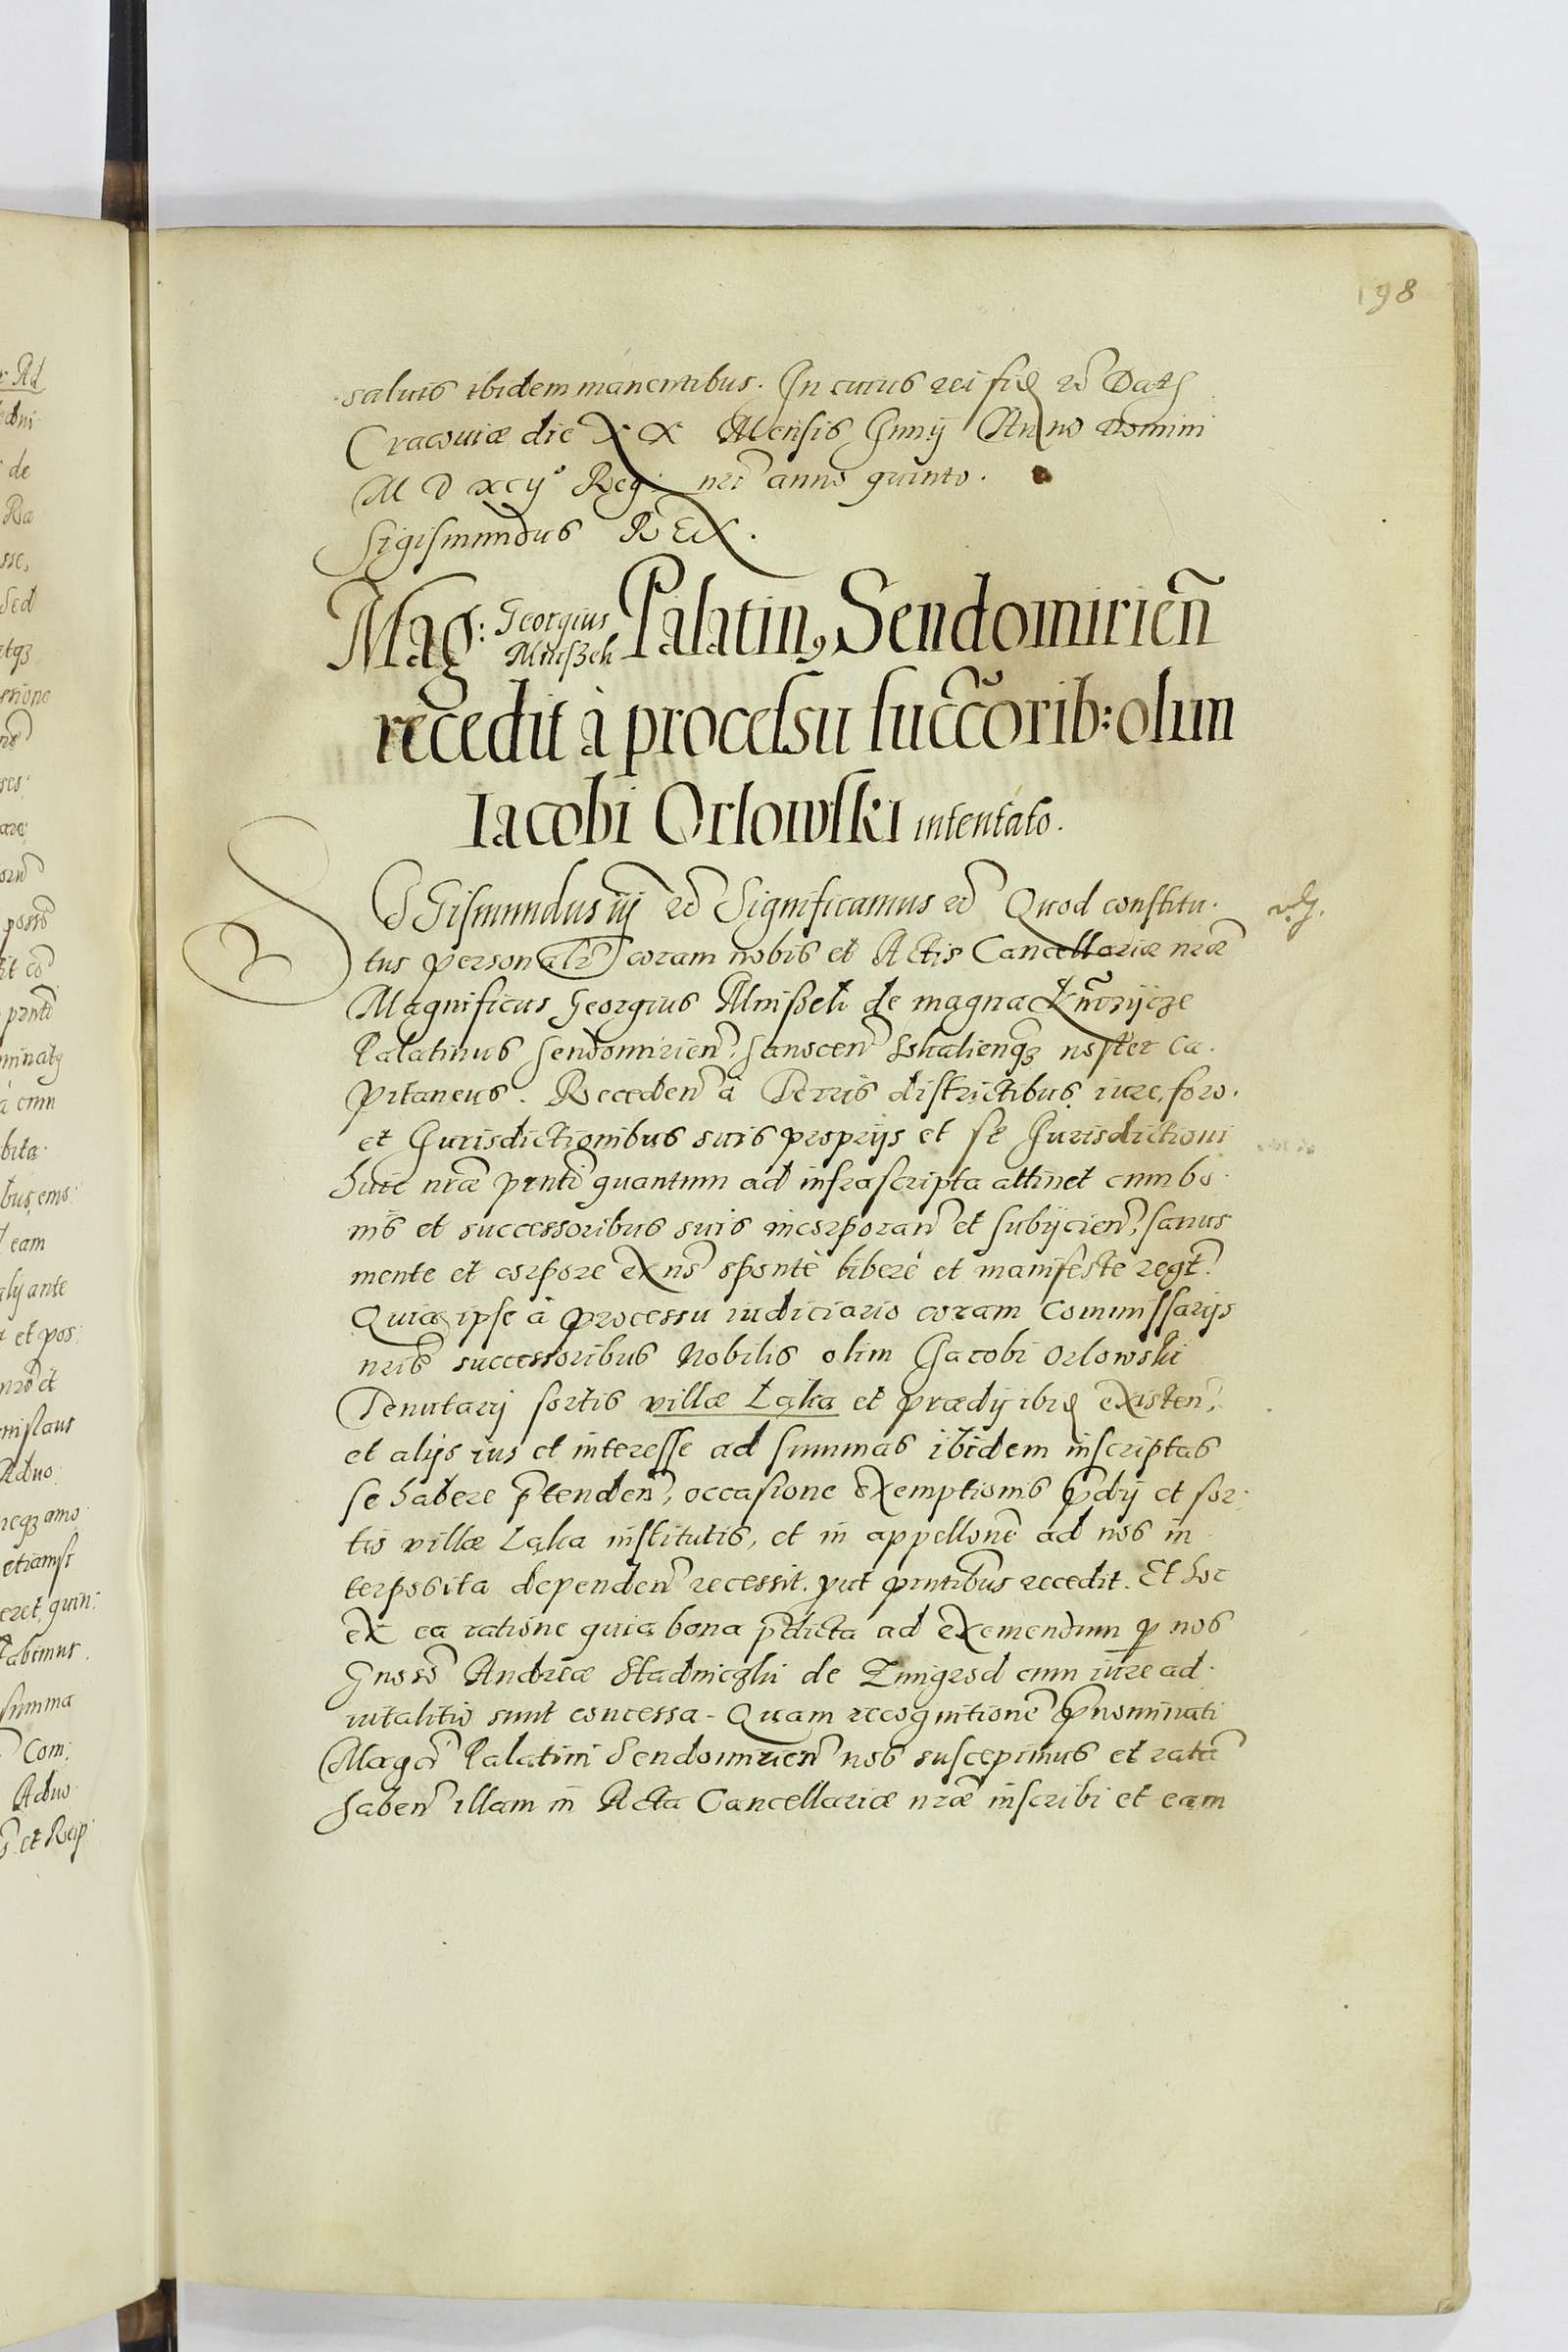 198
saluis ibidem manentibus. In cuius rei fid etc Dat
Cracouiæ die XX Mensis Junij Anno Domini
M D xcij° Reg: nri anno quinto.
Sigismundus REX.
Mag: Georgius Mnißek Palatin9 Sendomirien̄
recedit à processu succōrib: olim
Iacobi Orlowski intentato.
SIGismundus iij etc Significamus etc Quod constitu.
tus personalr coram nobis et Actis Cancellariæ nræ
Magnificus Georgius Mnißek de magna Kn̄czijcze
Palatinus Sendomirien, Sanocen Sokalienqз noster Ca.
pitaneus. Receden à Terris districtibus, iure, foro.
et Jurisdictionibus suis proprijs et se Jurisdictioni
huic nræ prnti quantum ad infrascripta attinet cum bo.
nis et successoribus suis incorporan et subijcien, sanus
mente et corpore exns spontè liberè et manifeste regt.
Quia ipse à processu iudiciario coram Commissarijs
nris successoribus Nobilis olim Jacobi Orlowski
Tenutarij sortis villæ Łąka et prædij ibid existen,
et alijs ius et interesse ad summas ibidem inscriptas
se habere p̄tenden, occasione exemptionis p̄dij et sor.
tis villæ Łąka institutis, et in appellone ad nos in
terposita dependen recessit. put prntibus recedit. Et hoc
ex ea ratione quia bona p̄dicta ad exemendum p nos
Gnoso Andreæ Stadniczki de Zmigrod cum iure ad.
uitalitio sunt concessa - Quam recognitione p̄nominati
Magci Palatini Sendomirien nos suscepimus et rata
haben illam in Acta Cancellariæ nræ inscribi et eam